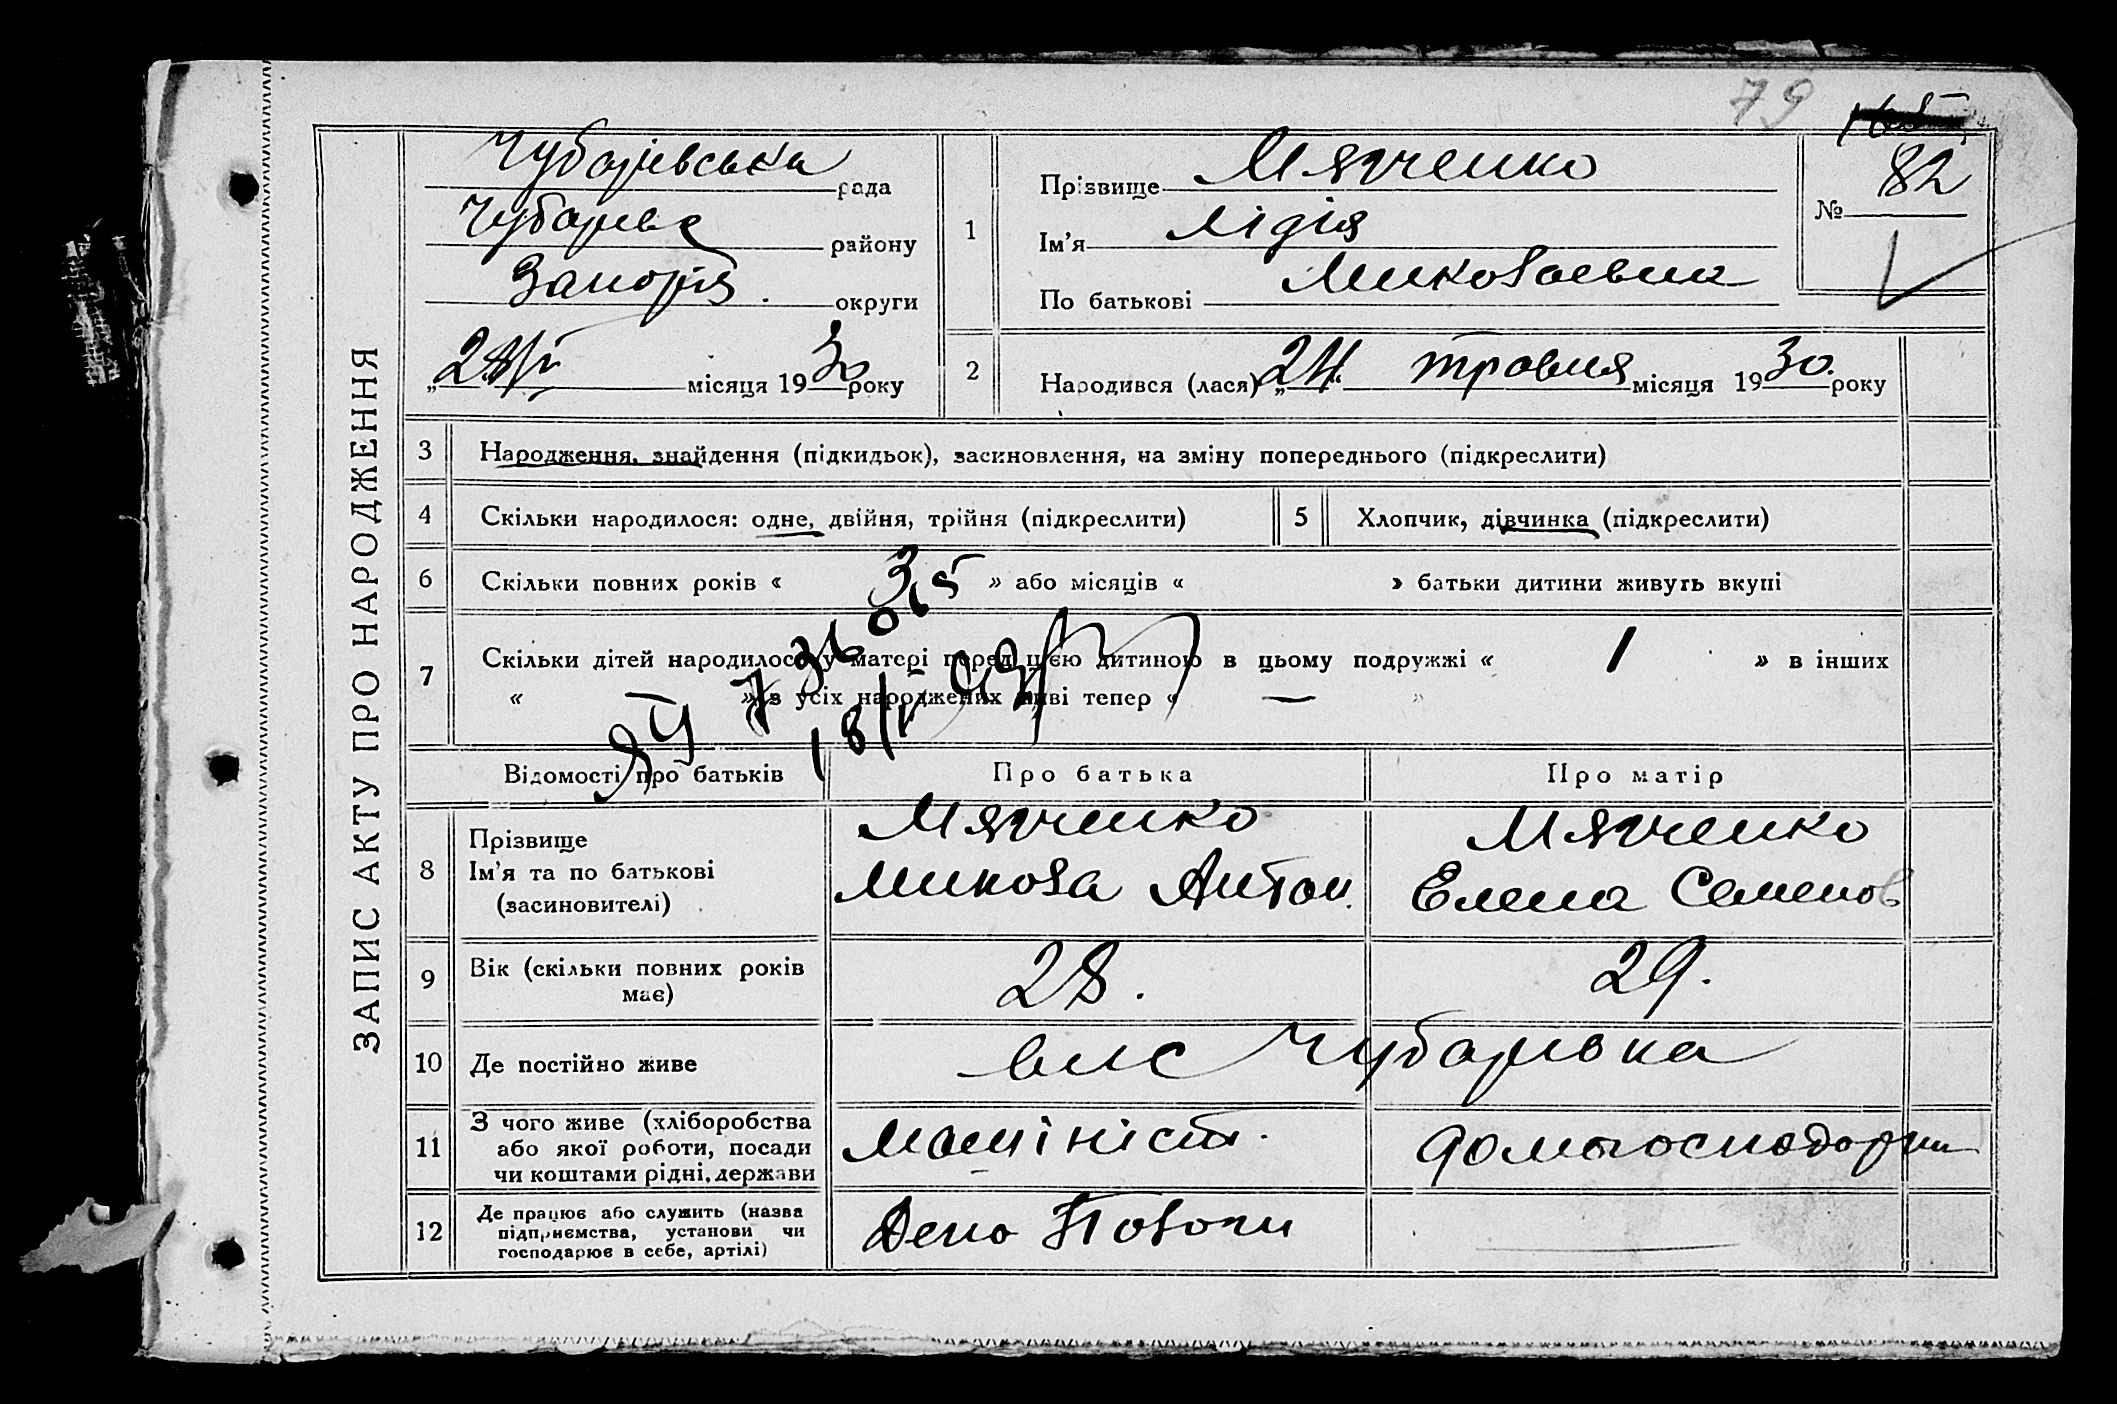 79
82
№
ЗАПИС АКТУ ПРО НАРОДЖЕННЯ
Чубарівська рада
Чубарівс району
Запоріз. округи
„28/V місяця 1930 року
1
Прізвище Мятченко
Ім'я Лідія
По батькові Миколаевна
2
Народився (лася) „24 травня місяця 1930 року
3 Народження, знайдення (підкидьок), засиновлення, на зміну попереднього (підкреслити)
4 Скільки народилося: одне, двійня, трійня (підкреслити)
5 Хлопчик, дівчинка (підкреслити)
6 Скільки повних років « 3 » або місяців « » батьки дитини живуть вкупі
7 Скільки дітей народилося у матері перед цією дитиною в цьому подружжі « 1 » в інших
« » з усіх народжених живі тепер « — »
Відомості про батьків Про батька Про матір
8 Прізвище
Ім'я та по батькові
(засиновителі)
Мятченко
Микола Антон.
Мятченко
Елена Семенов
9 Вік (скільки повних років
має)
28. 29.
10 Де постійно живе Чубарівка
11 З чого живе (хліборобства
або якої роботи, посади
чи коштами рідні, держави
Машініст. домогосподарка
12 Де працює або служить (назва
підприємства, установи чи
господарює в себе, артілі)
Депо Пологи